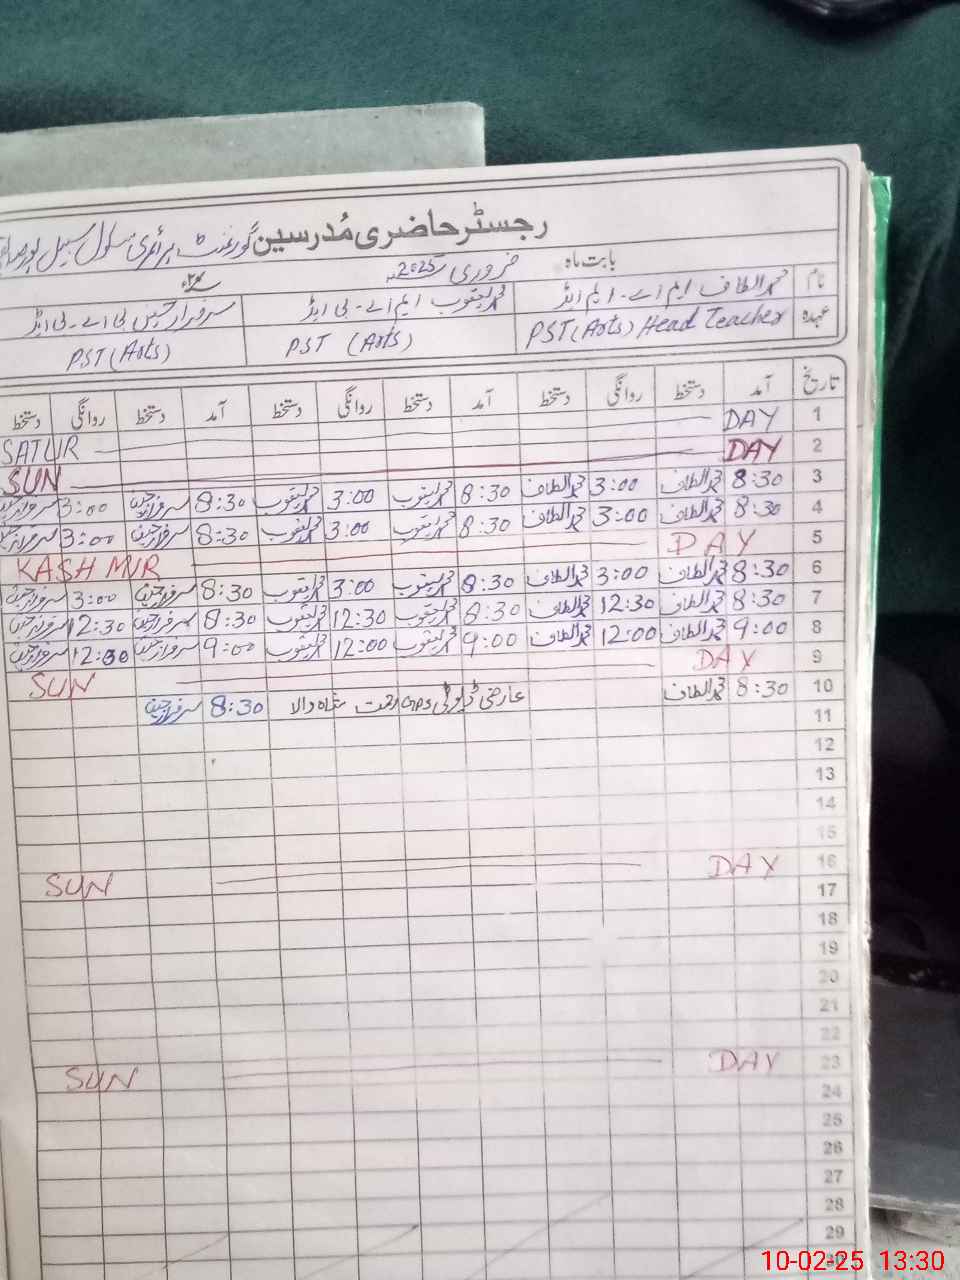 رجسٹر حاضری مُدرسین گورنمنٹ پرائمری سکول سہیل پور
بابت ماہ فروری 2025ء
نام محمد الطاف ایم اے۔ ایم ایڈ محمد یعقوب ایم اے۔ بی ایڈ سرفراز حسین بی اے۔ بی ایڈ
عہدہ PST (Arts) Head Teacher PST (Arts) PST (Arts)
تاریخ آمد دستخط روانگی دستخط آمد دستخط روانگی دستخط آمد دستخط روانگی دستخط
1 SATUR DAY
2 SUN DAY
3 8:30 محمد الطاف 3:00 محمد الطاف 8:30 محمد یعقوب 3:00 محمد یعقوب 8:30 سرفراز حسین 3:00 سرفراز حسین
4 8:30 محمد الطاف 3:00 محمد الطاف 8:30 محمد یعقوب 3:00 محمد یعقوب 8:30 سرفراز حسین 3:00 سرفراز حسین
5 KASHMIR DAY
6 8:30 محمد الطاف 3:00 محمد الطاف 8:30 محمد یعقوب 3:00 محمد یعقوب 8:30 سرفراز حسین 3:00 سرفراز حسین
7 8:30 محمد الطاف 12:30 محمد الطاف 8:30 محمد یعقوب 12:30 محمد یعقوب 8:30 سرفراز حسین 12:30 سرفراز حسین
8 9:00 محمد الطاف 12:00 محمد الطاف 9:00 محمد یعقوب 12:00 محمد یعقوب 9:00 سرفراز حسین 12:00 سرفراز حسین
9 SUN DAY
10 8:30 محمد الطاف عارضی ڈیوٹی GPS رحمت شاہ والا 8:30 سرفراز حسین
11
12
13
14
15
16 SUN DAY
17
18
19
20
21
22
23 SUN DAY
24
25
26
27
28
29
30
10-02-25 13:30